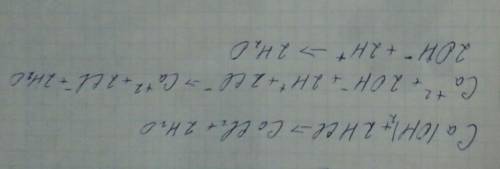 Ca(OH)₂ + 2HCl → CaCl₂ + 2H₂O
Ca⁺² + 2OH⁻ + 2H⁺ + 2Cl⁻ → Ca⁺² + 2Cl⁻ + 2H₂O
2OH⁻ + 2H⁺ → 2H₂O